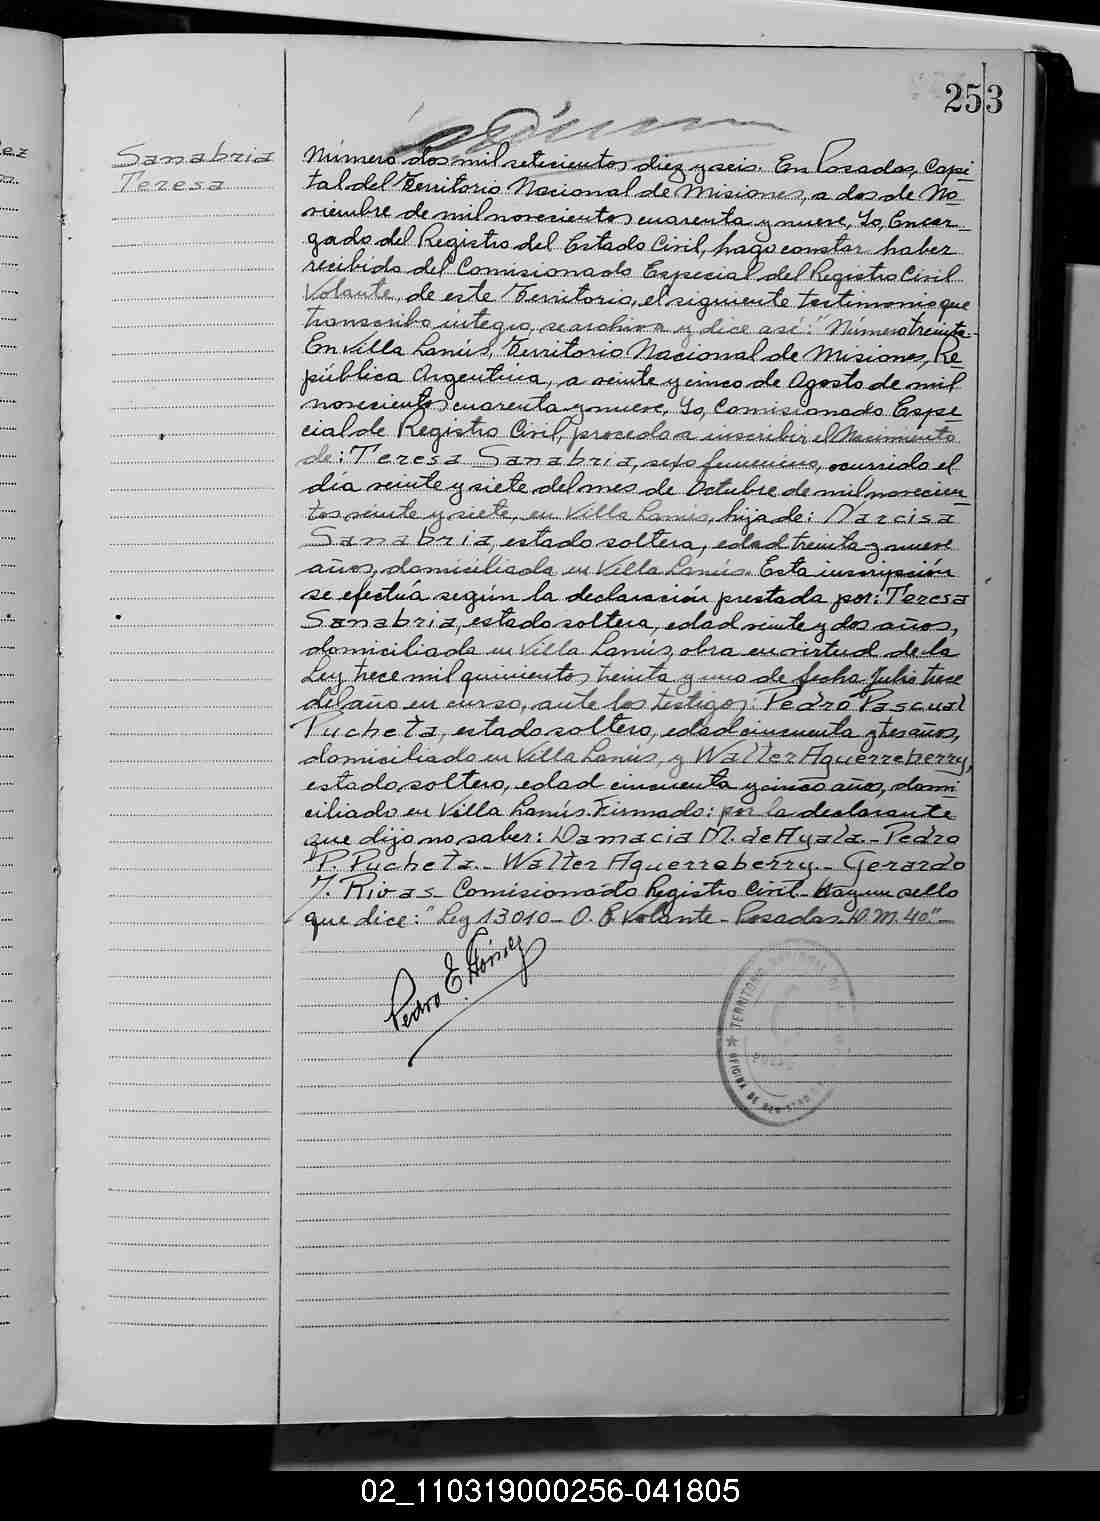 253
Sanabria
Teresa
Número dos mil setecientos diez y seis. En Posadas, Capi-
tal del Territorio Nacional de Misiones, a dos de No-
viembre de mil novecientos cuarenta y nueve, Yo, Encar-
gado del Registro del Estado Civil, hago constar haber
recibido del Comisionado Especial del Registro Civil
Volante, de este Territorio, el siguiente testimonio que
transcribo íntegro, se archiva y dice así: "Número treinta.-
En Villa Lanús, Territorio Nacional de Misiones, Re-
pública Argentina, a veinte y cinco de Agosto de mil
novecientos cuarenta y nueve, Yo, Comisionado Espe-
cial de Registro Civil, procedo a inscribir el Nacimiento
de: Teresa Sanabria, sexo femenino, ocurrido el
día veinte y siete del mes de Octubre de mil novecien-
tos veinte y siete, en Villa Lanús, hija de: Narcisa
Sanabria, estado soltera, edad treinta y nueve
años, domiciliada en Villa Lanús. Esta inscripción
se efectúa según la declaración prestada por: Teresa
Sanabria, estado soltera, edad veinte y dos años,
domiciliada en Villa Lanús, obra en virtud de la
Ley trece mil quinientos treinta y uno de fecha Julio trece
del año en curso, ante los testigos: Pedro Pascual
Pucheta, estado soltero, edad cincuenta y tres años,
domiciliado en Villa Lanús, y Walter Aguerreberry,
estado soltero, edad cincuenta y cinco años, domi-
ciliado en Villa Lanús. Firmado: por la declarante
que dijo no saber: Damacia M. de Ayala.- Pedro
P. Pucheta.- Walter Aguerreberry.- Gerardo
J. Rivas - Comisionado Registro Civil - Hay un sello
que dice: "Ley 13010 - O. E. Volante - Posadas. D. M. 40."-
Pedro E.
TERRITORIO NACIONAL DE
OFICINA DE
02_110319000256-041805